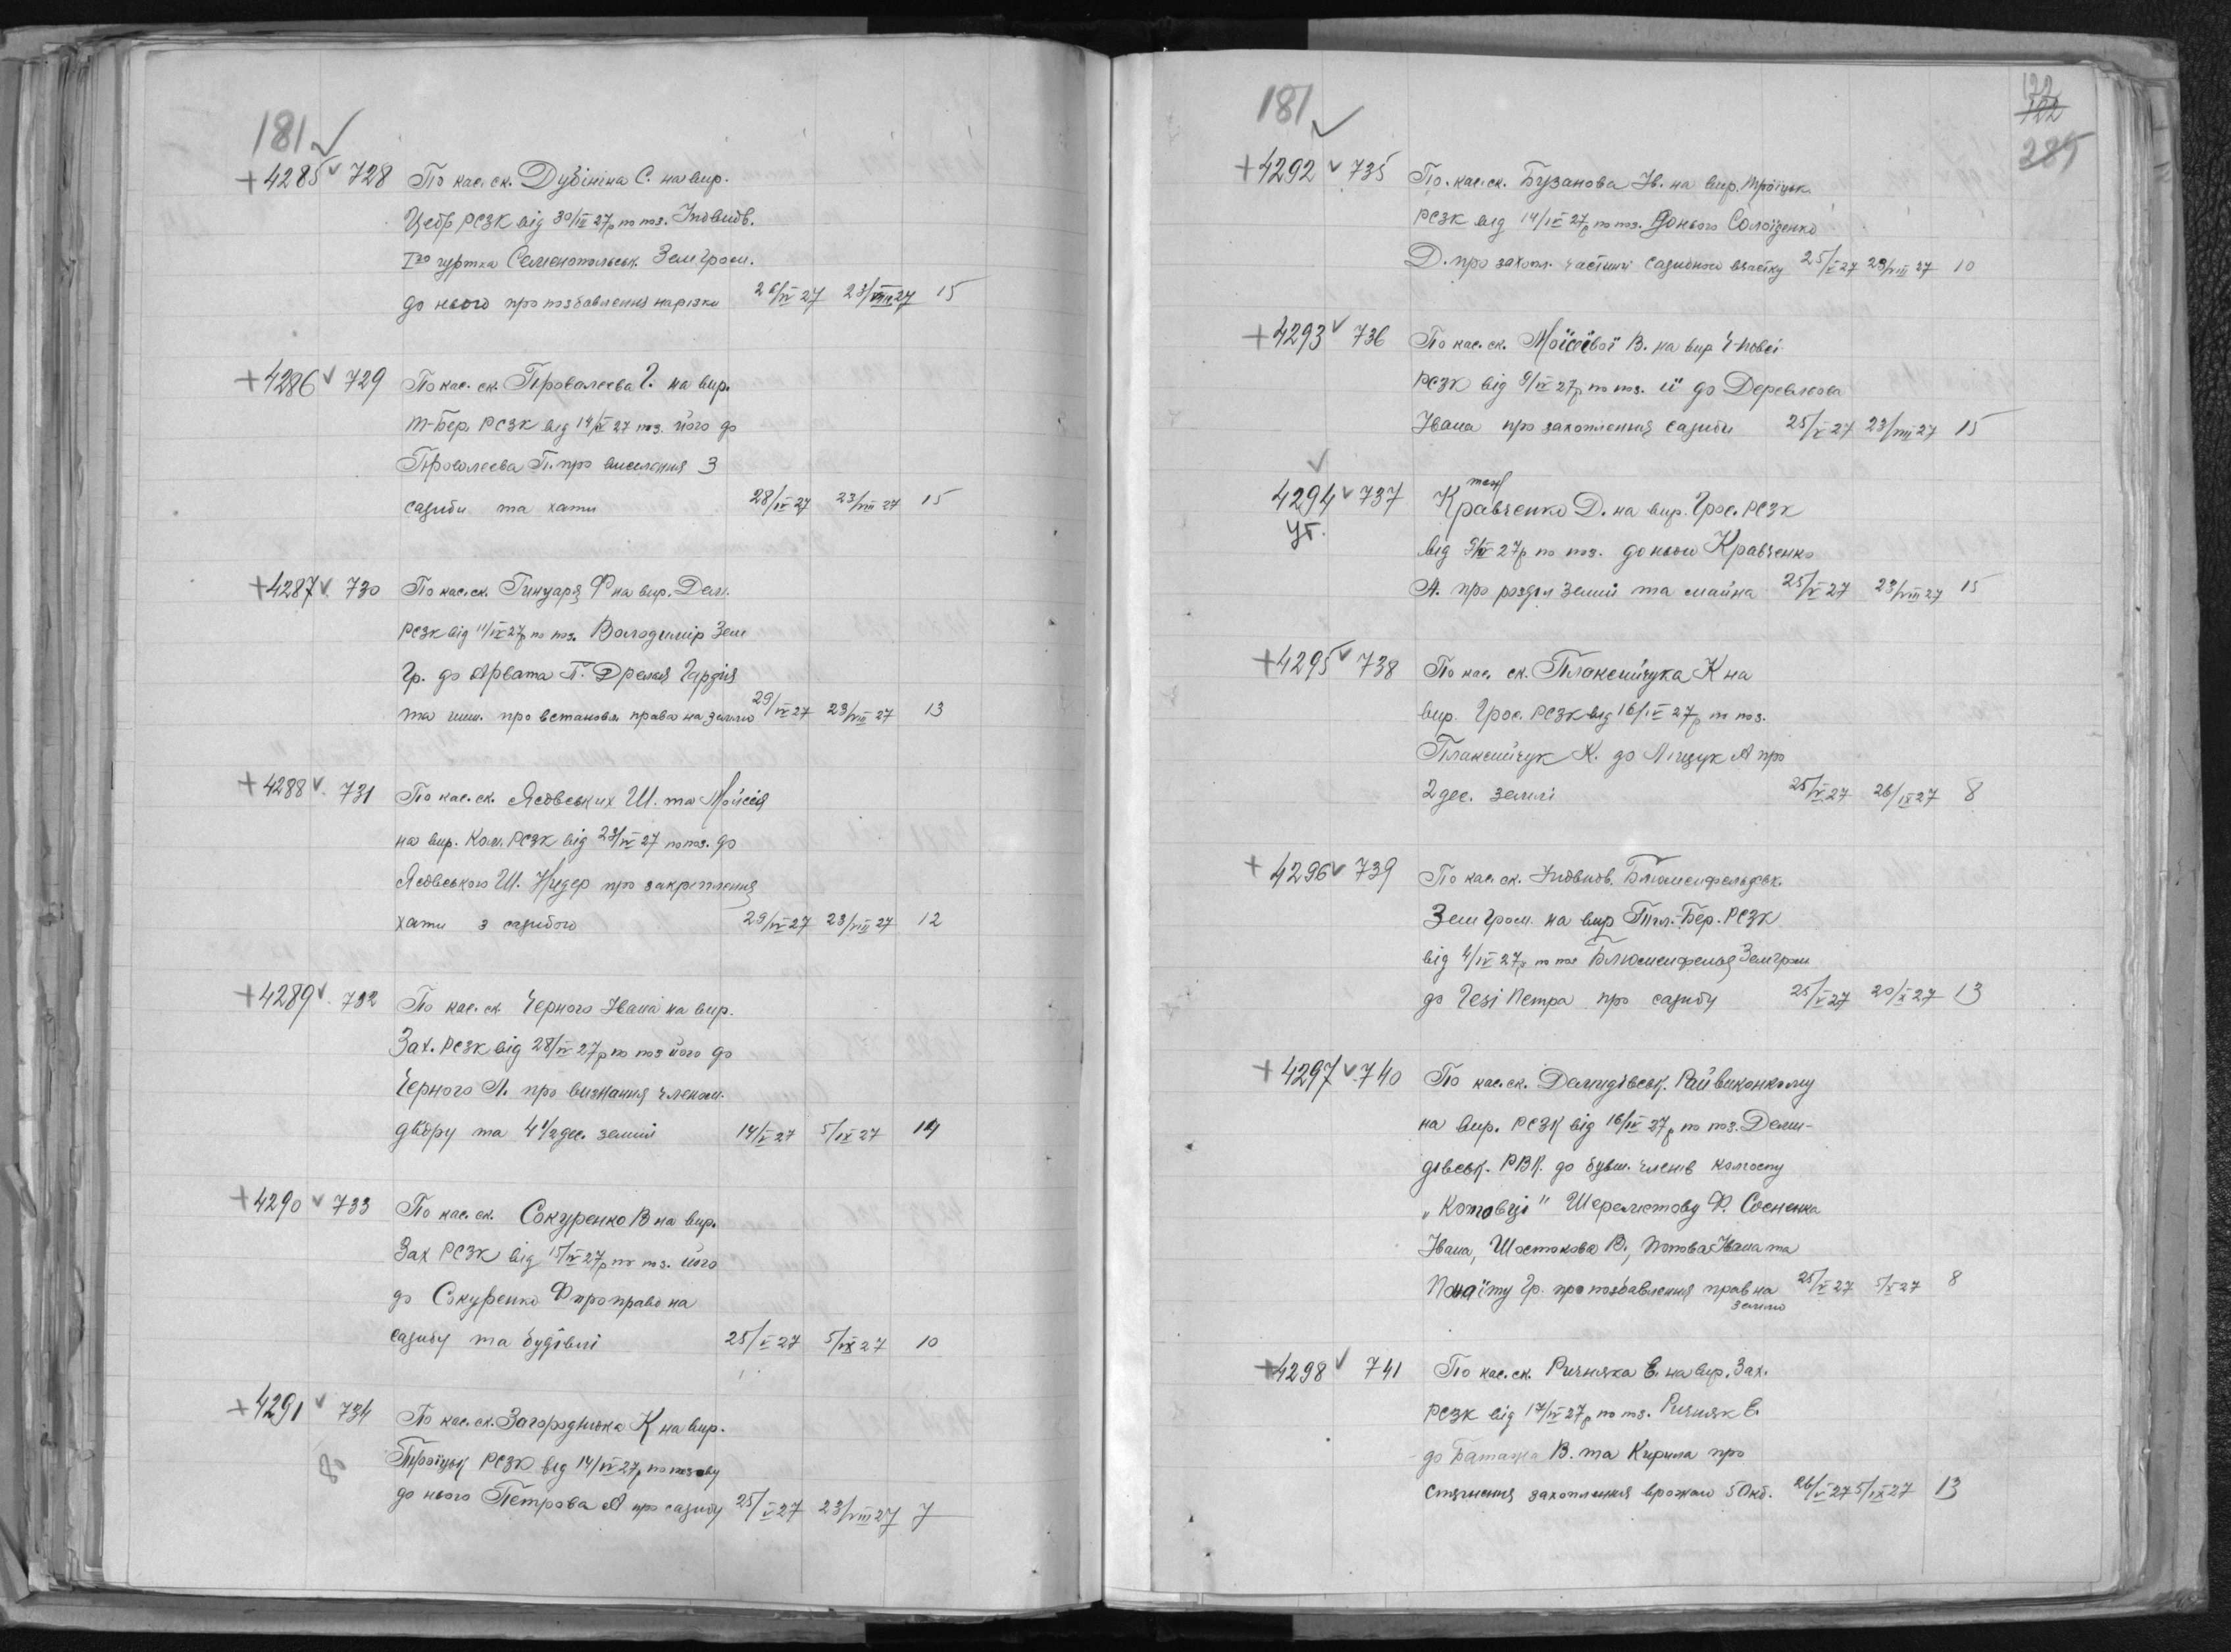 181 ✓
+4285 v 728 По кас. ск. Дубініна С. на вир.
Цебр РСЗК від 30/III 27р по поз. Індивідв.
Iго гуртка Семенопольськ. Земгром.
до нього про позбавлення нарізки 26/IV 27 23/VIII 27 15
+4286 v 729 По кас. ск. Проволєєва Г. на вир.
т-Бер. РСЗК від 14/IV 27 поз. його до
Проволєєва П. про виселення з
садиби та хати 28/IV 27 23/VIII 27 15
+4287 v. 730 По кас. ск. Гинуаря Ф на вир. Дем.
РСЗК від 11/IV 27р по поз. Володимір Зем
Гр. до Арвата П. Гардія
та инш. про встановл. права на землю 29/IV 27 23/VIII 27 13
+4288 v. 731 По кас. ск. Ясовських Ш. та Мойсея
на вир. Ком. РСЗК від 23/IV 27 по поз. до
Ясовською Ш. Нидер про закреплення
хати з садибою 29/IV 27 23/VIII 27 12
+4289 v. 732 По кас. ск. Черного Івана на вир.
Зах. РСЗК від 28/IV 27р по поз його до
Черного Л. про визнання членом
двору та 4 1/2 дес. землі 14/V 27 5/IX 27 14
+4290 v 733 По кас. ск. Сокуренко В на вир.
Зах РСЗК від 15/IV 27р по поз. його
до Сокуренко Ф про право на
садибу та будівлі 25/V 27 5/IX 27 10
+4291 v 734 По кас. ск. Загороднюка К на вир.
Троїцьк РСЗК від 14/IV 27р по позову
до нього Петрова А про садибу 25/V 27 23/VIII 27 7
181 ✓
122
122
285
+4292 v 735 По. кас. ск. Бузанова Ів. на вир. Троїцьк.
РСЗК від 14/IV 27р по поз. до нього Солоїденко
Д. про захопл. частини садибного вчастку 25/V 27 23/VIII 27 10
+4293 v 736 По кас. ск. Моїсєївої В. на вир
РСЗК від 9/IV 27р по поз. її до Деревлєова
Івана про захоплення садиби 25/V 27 23/VIII 27 15
✓
4294 v 737 теж Кравченко Д. на вир. Грос. РСЗК
УТ.
від 9/IV 27р по поз. до нього Кравченко
А. про розділ землі та майна 25/V 27 23/VIII 27 15
+4295 v 738 По кас. ск. Плаксийчука К на
вир. Грос. РСЗК від 16/IV 27р по поз.
Плаксийчук К. до Ліщук А про
2 дес. землі 25/V 27 26/IX 27 8
+4296 v 739 По кас. ск. Індивидв. Блюменфельдськ.
Земгром. на вир Тил.-Бер. РСЗК
від 4/IV 27р по поз Блюменфельд Земгром
до Гезі Петра про садибу 25/V 27 20/X 27 13
+4297 v. 740 По кас. ск. Демидівськ. Райвиконкому
на вир. РСЗК від 16/IV 27р по поз. Деми-
дівськ. РВК. до бувш. членів колгоспу
„Котовці" Шереметову Ф. Сосненка
Івана, Шостокова В., Попова Івана та
Понаїту Гр. про позбавлення прав на землю 25/V 27 5/X 27 8
+4298 v 741 По кас. ск. Ричняка Е. на вир. Зах.
РСЗК від 17/IV 27р по поз. Ричняк Е.
до Баташа В. та Кирила про
стягнення захоплення врожаю 50кб. 26/V 27 5/IX 27 13